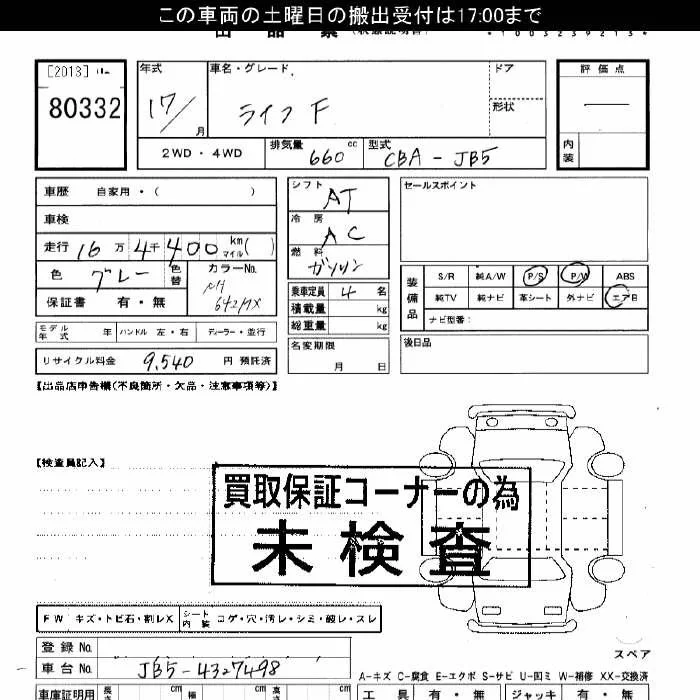 この車両の土曜日の搬出受付は17:00まで
[2013]
80332
年式 17/ 月
車名・グレード ライフ F
ドア
形状
評価点 —
内装
2WD・4WD
排気量 660 cc
型式 CBA-JB5
車歴 自家用・( )
車検
走行 16万4千400 km マイル( )
色 グレー 色替
カラーNo. NH 642MX
保証書 有・無
シフト AT
冷房 AC
燃料 ガソリン
乗車定員 4 名
積載量 kg
総重量 kg
セールスポイント
装備品
S/R 純A/W P/S P/W ABS
純TV 純ナビ 革シート 外ナビ エアB
ナビ型番:
モデル年式 年 ハンドル 左・右 ディーラー・並行
名変期限 月 日
後日品
リサイクル料金 9,540 円 預託済
【出品店申告欄(不良箇所・欠品・注意事項等)】
【検査員記入】
買取保証コーナーの為
未検査
FW キズ・トビ石・割レX シート内装 コゲ・穴・汚レ・シミ・破レ・スレ
登録No.
車台No. JB5-4327498
スペア
A-キズ C-腐食 E-エクボ S-サビ U-凹ミ W-補修 XX-交換済
車庫証明用 長さ cm 幅 cm 高さ cm
工具 有・無 ジャッキ 有・無